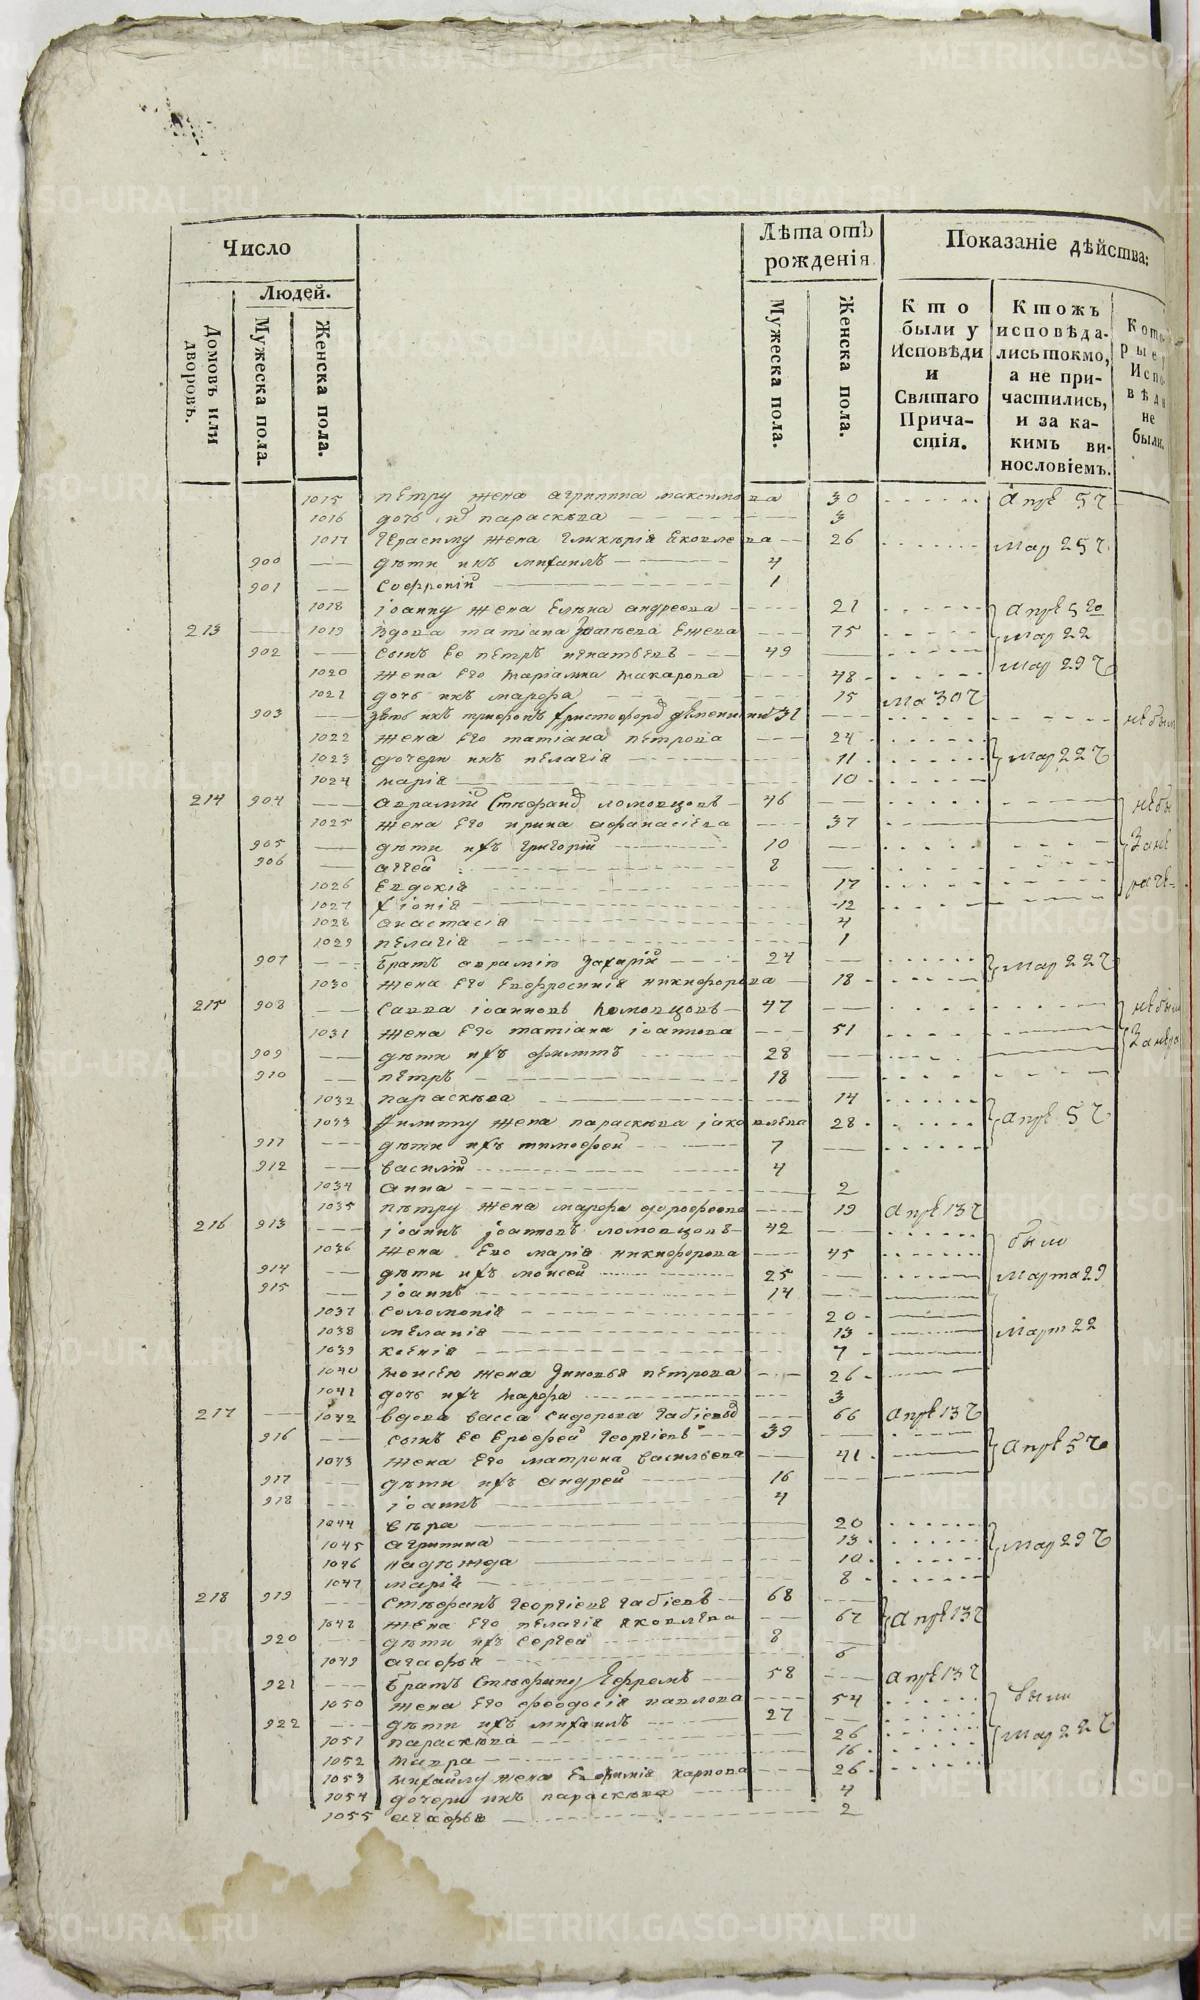 Число
Людей.
Домовъ или дворовъ.
Мужеска пола.
Женска пола.
Лѣта отъ рожденія
Мужеска пола.
Женска пола.
Показаніе дѣйства:
Кто были у Исповѣди и Святаго Причастія.
Ктожъ исповѣдались токмо, а не причастились, и за какимъ винословіемъ.
Которые Исповѣди не были.
1015 пѣтру жена агрипина максимова 30 Апр 5 ч
1016 дочь параскѣва 3
1017 герасиму жена гликѣрія Яковлева 26 Мар 25 ч
900 дѣти ихъ михаилъ 4
901 Софроній 1
1018 іоанну жена Елѣна андреова 21
213 1019 вдова татіана 75 Мар 22
902 сынъ ее пѣтръ игнатьевъ 49
1020 жена его маріамна макарова 48 Мар 29 ч
1021 дочь ихъ марфа 15 Ма 30 ч
903 зять ихъ трифонъ 31
1022 жена его татіана пѣтрова 24
1023 дочери ихъ пелагія 11 Мар 22 ч
1024 марія 10
214 904 аврамій Стефанов ломовцовъ 46
1025 жена его ирина афанасіева 37
905 дѣти ихъ григорій 10
906 аггей 8
1026 Евдокія 17
1027 хіонія 12
1028 анастасія 4
1029 пелагія 1
907 братъ аврамію захарій 24 Мар 22 ч
1030 жена его Евфросинія никифорова 18
215 908 савва іоанновъ ломовцовъ 47
1031 жена его татіана іоанова 51
909 дѣти ихъ филиппъ 28
910 пѣтръ 18
1032 параскѣва 14
1033 Филиппу жена параскѣва іаковлева 28 Апр 5 ч
911 дѣти ихъ тимофей 7
912 василій 4
1034 анна 2
1035 пѣтру жена марфа дорофеова 19 Апр 13 ч
216 913 іоаннъ іоанновъ ломовцовъ 42 были
1036 жена его марія никифорова 45
914 дѣти ихъ моисей 25 Марта 29
915 іоаннъ 14
1037 соломонія 20
1038 меланія 13 Март 22
1039 ксенія 7
1040 моисею жена зиновья пѣтрова 26
1041 дочь ихъ марфа 3
217 1042 вдова васса сидорова 66 Апр 13 ч
916 сынъ ее Ерофей георгіевъ 39
1043 жена его матрона васильева 41 Апр 5 ч
917 дѣти ихъ андрей 16
918 іоаннъ 4
1044 вѣра 20
1045 агрипина 13 Мар 29 ч
1046 надѣжда 10
1047 марія 8
218 919 Стефанъ георгіевъ 68
1048 жена его пелагія яковлева 67 Апр 13 ч
920 дѣти ихъ сергей 8
1049 агафья 6
921 братъ Стефану Ефремъ 58 Апр 13 ч
1050 жена его феодосія павлова 54 были
922 дѣти ихъ михаилъ 27
1051 параскѣва 26 Мар 22 ч
1052 мавра 16
1053 михаилу жена Евфимія карпова 26
1054 дочери ихъ параскѣва 4
1055 агафья 2
METRIKI.GASO-URAL.RU